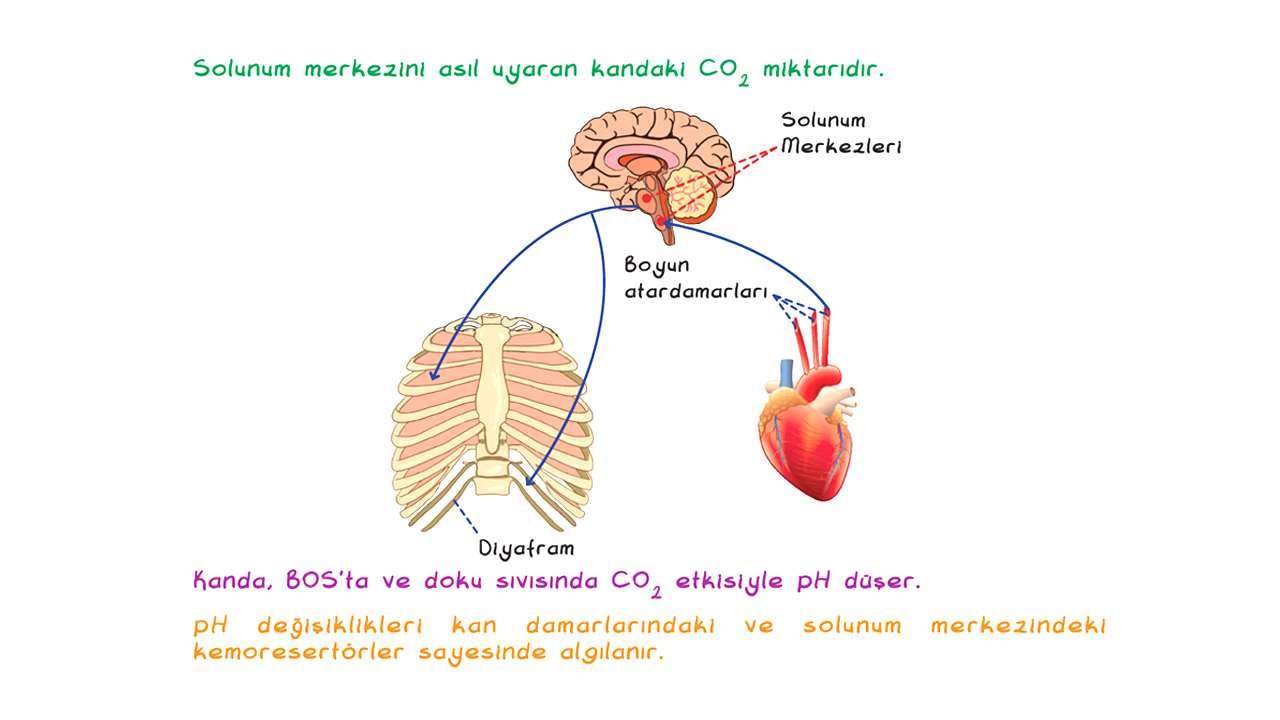 Solunum merkezini asıl uyaran kandaki CO₂ miktarıdır.
Solunum
Merkezleri
Boyun
atardamarları
Diyafram
Kanda, BOS'ta ve doku sıvısında CO₂ etkisiyle pH düşer.
pH değişiklikleri kan damarlarındaki ve solunum merkezindeki
kemoresertörler sayesinde algılanır.